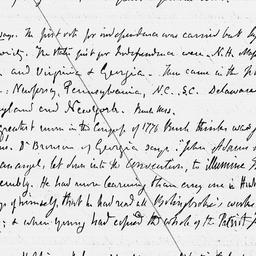 says. The first vote for independence was carried but by
ority. The States first for Independence were. N.H. Mass
and Virginia & Georgia. Then came in the
: New Jersey, Pennsylvania, N.C., S.C. Delaware
yland and New York.
greatest man in the Congress of 1776 Rush thinks was
Dr Brownson of Georgia says : John Adams
an angel, let down into the Convention, to illumine
embly. He had more learning than any one in that
of himself, that he had read all Bolingbroke's works
; & when young had copied the whole of the Patriot